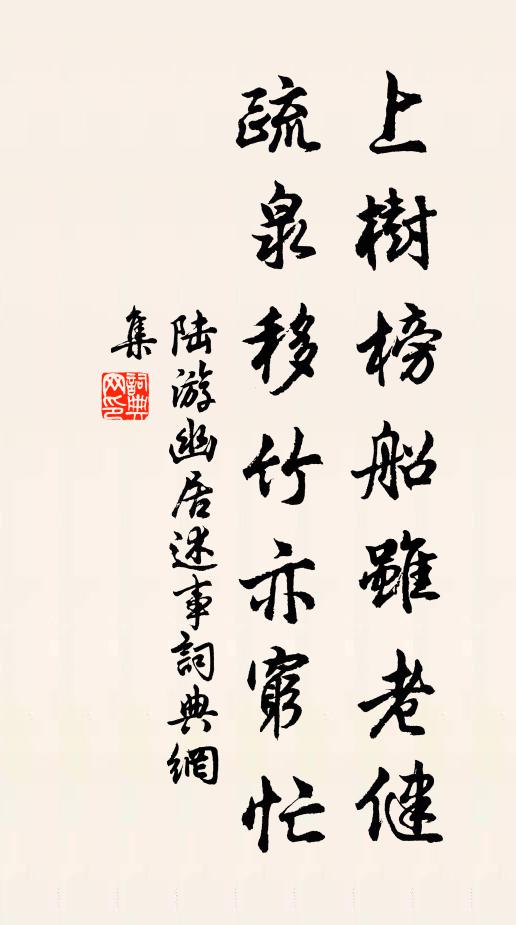 上樹榜船雖老健
疏泉移竹亦窮忙
陆游幽居述事詞典網
集
詞典网印